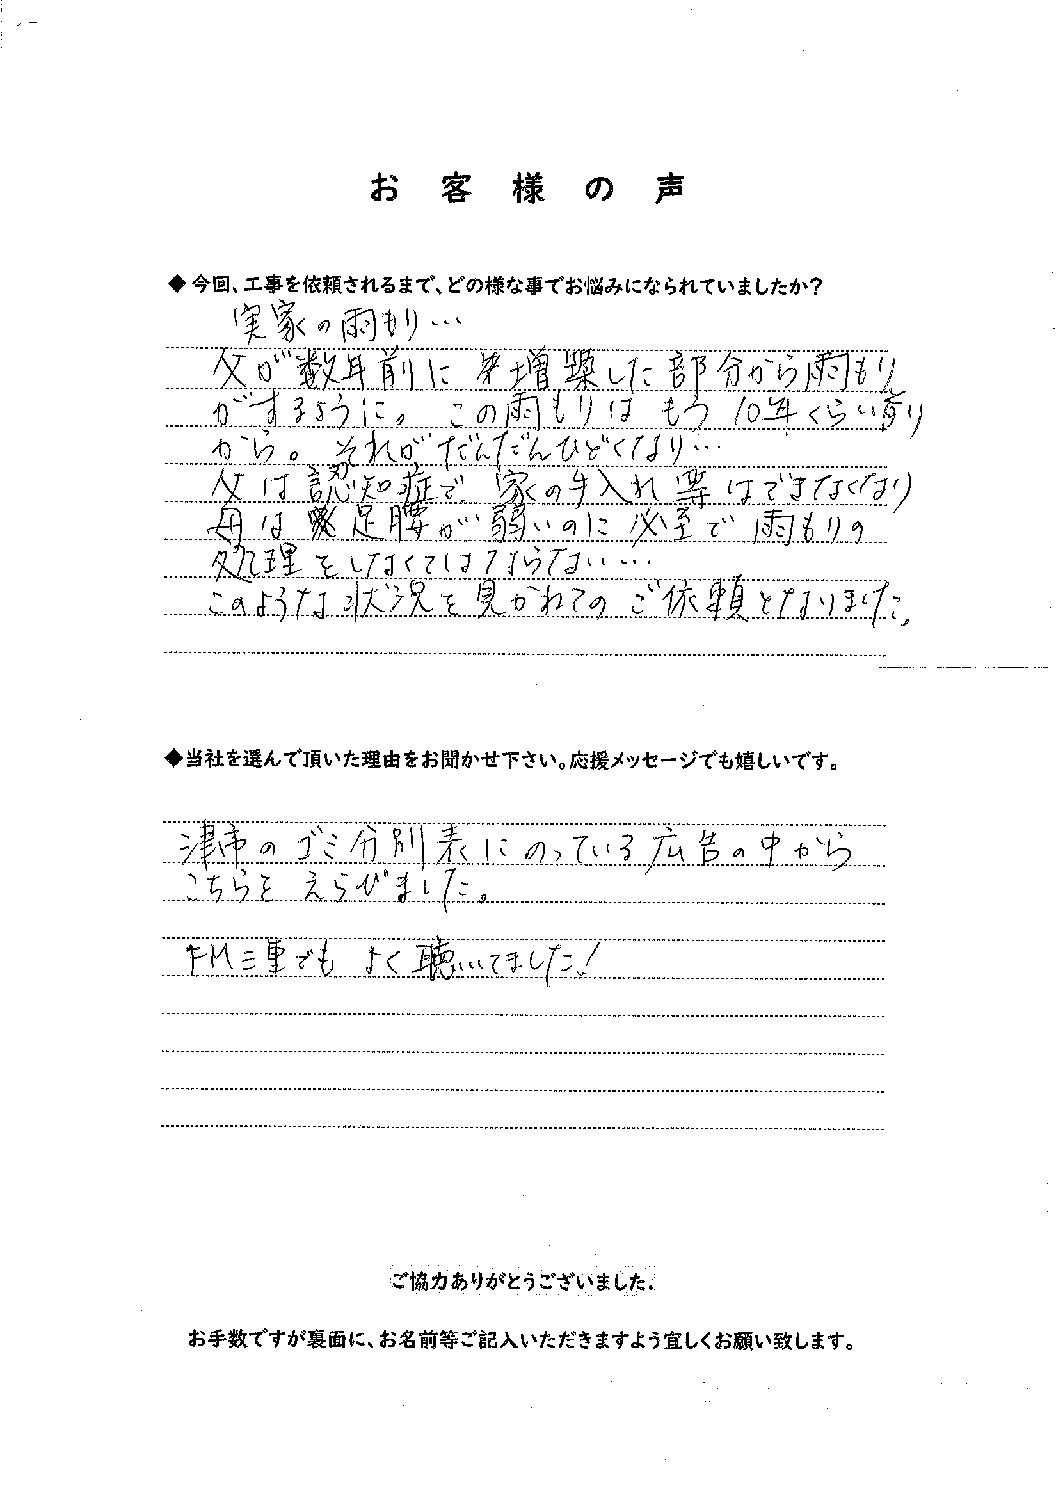 お客様の声
◆今回、工事を依頼されるまで、どの様な事でお悩みになられていましたか?
実家の雨もり…
父が数年前に増築した部分から雨もり
がするように。この雨もりはもう10年くらい前
から。それがだんだんひどくなり…
父は認知症で、家の手入れ等はできなくなり
母は足腰が弱いのに必至で雨もりの
処理をしなくてはならない…
このような状況を見かねてのご依頼となりました。
◆当社を選んで頂いた理由をお聞かせ下さい。応援メッセージでも嬉しいです。
津市のゴミ分別表にのっている広告の中から
こちらをえらびました。
FM三重でもよく聴いてました!
ご協力ありがとうございました。
お手数ですが裏面に、お名前等ご記入いただきますよう宜しくお願い致します。